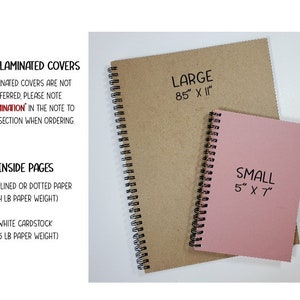 LAMINATED COVERS
NATED COVERS ARE NOT
FERRED, PLEASE NOTE
MINATION" IN THE NOTE TO
SECTION WHEN ORDERING
INSIDE PAGES
LINED OR DOTTED PAPER
LB PAPER WEIGHT)
WHITE CARDSTOCK
LB PAPER WEIGHT)
LARGE
8.5" X 11"
SMALL
5" X 7"